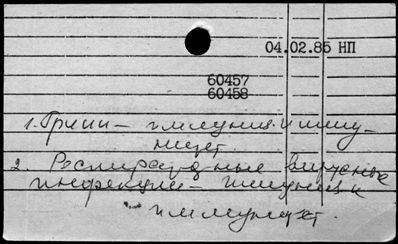 04.02.85 НП
60457
60458
1. Грипп — иммуниз. и имму-
нитет
2. Респираторные вирусные
инфекции — иммуниз. и
иммунитет.